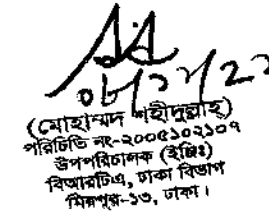 (মোহাম্মদ শহীদুল্লাহ)
পরিচিতি নং-২০০৫১০২১০৭
উপপরিচালক (ইঞ্জিঃ)
বিআরটিএ, ঢাকা বিভাগ
মিরপুর-১৩, ঢাকা।